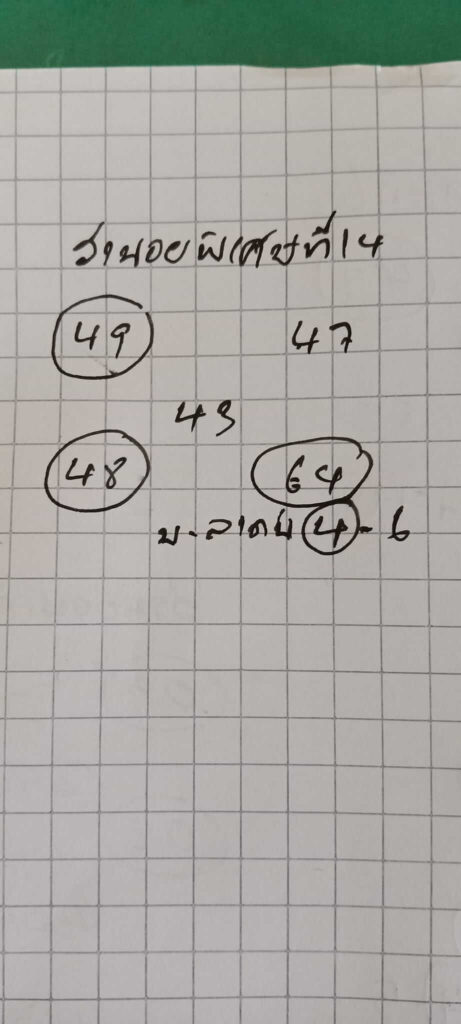 ฮานอย พิเศษที่ 14
49 47
43
48 64
4 - 6